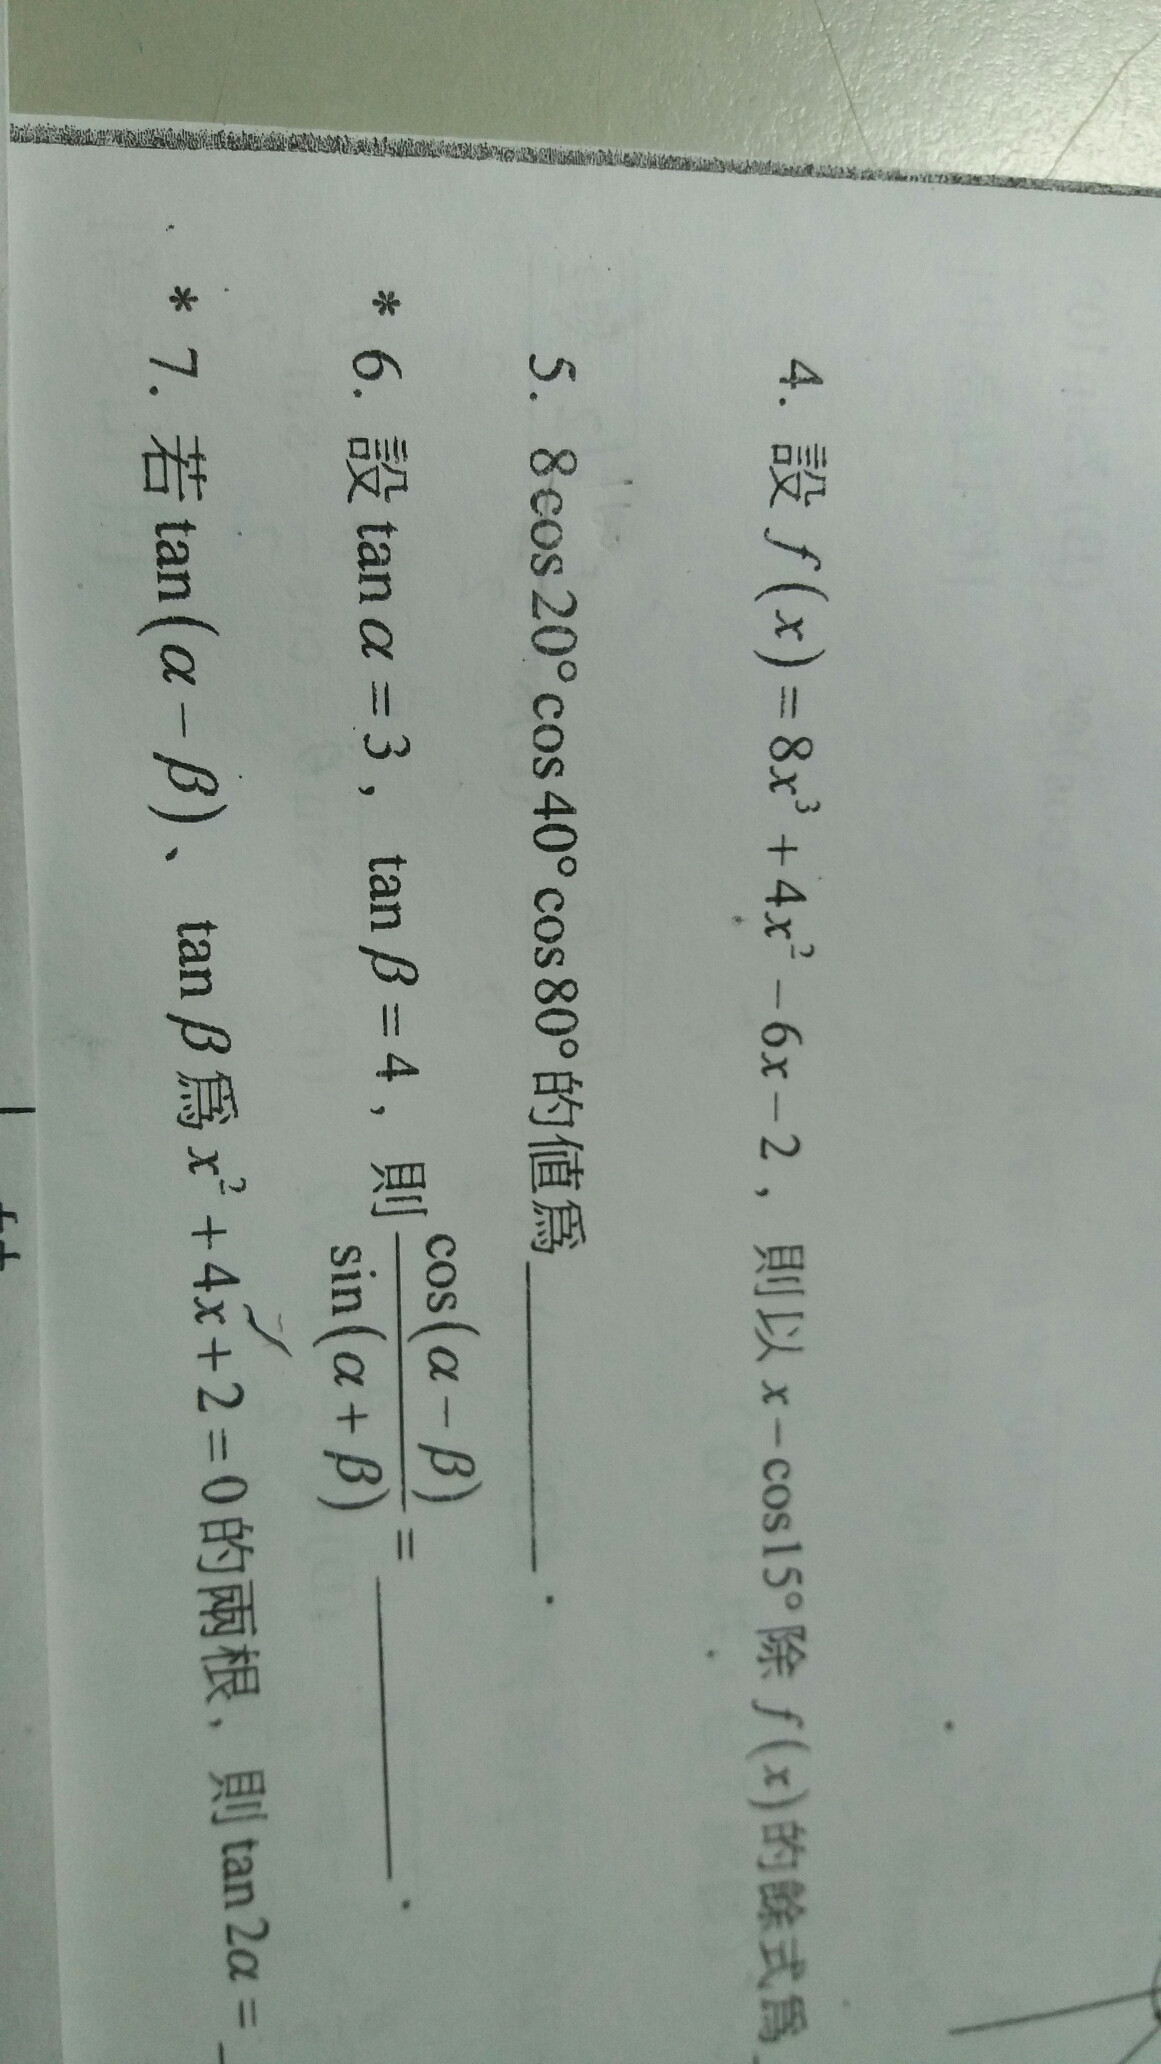 4. 設 f(x)=8x³+4x²-6x-2，則以 x-cos15° 除 f(x)的餘式爲
5. 8cos20°cos40°cos80°的值爲________.
* 6. 設 tan α=3， tan β=4，則 cos(α-β)/sin(α+β) = ________.
* 7. 若 tan(α-β)、 tan β 爲 x²+4x+2=0 的兩根，則 tan 2α=